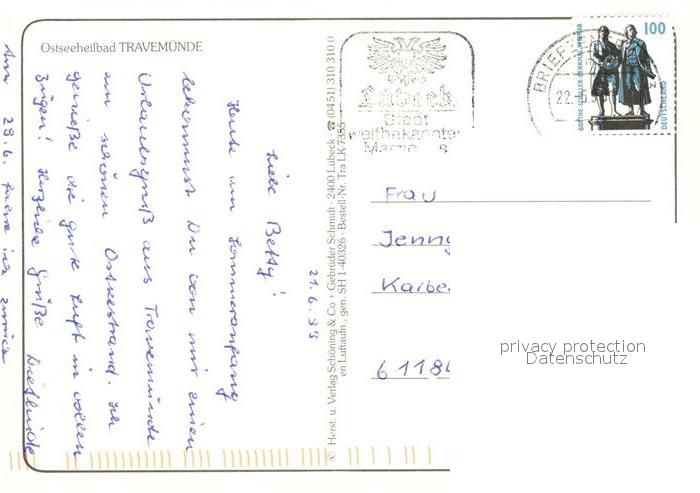 Ostseeheilbad TRAVEMÜNDE
21.6.99
Liebe Betty!
Heute am Sommeranfang
bekommst Du von mir einen
Urlaubsgruß aus Travemünde
am schönen Ostseestrand. Ich
genieße die gute Luft in vollen
Zügen! Herzliche Grüße Dietlinde
Am 28.6. fahre ich zurück
© Herst. u. Verlag Schöning & Co + Gebrüder Schmidt · 2400 Lübeck · ☎ (0451) 310 310 0
en Luftaufn., gen. SH 1-40326 · Bestell-Nr. Tra LK 7355
Lübeck
Stadt
weltbekannter
BRIEF
22.-6.
100
GOETHE-SCHILLER-DENKMAL WEIMAR
DEUTSCHLAND
Frau
Jenny
Karbe
6118
privacy protection
Datenschutz